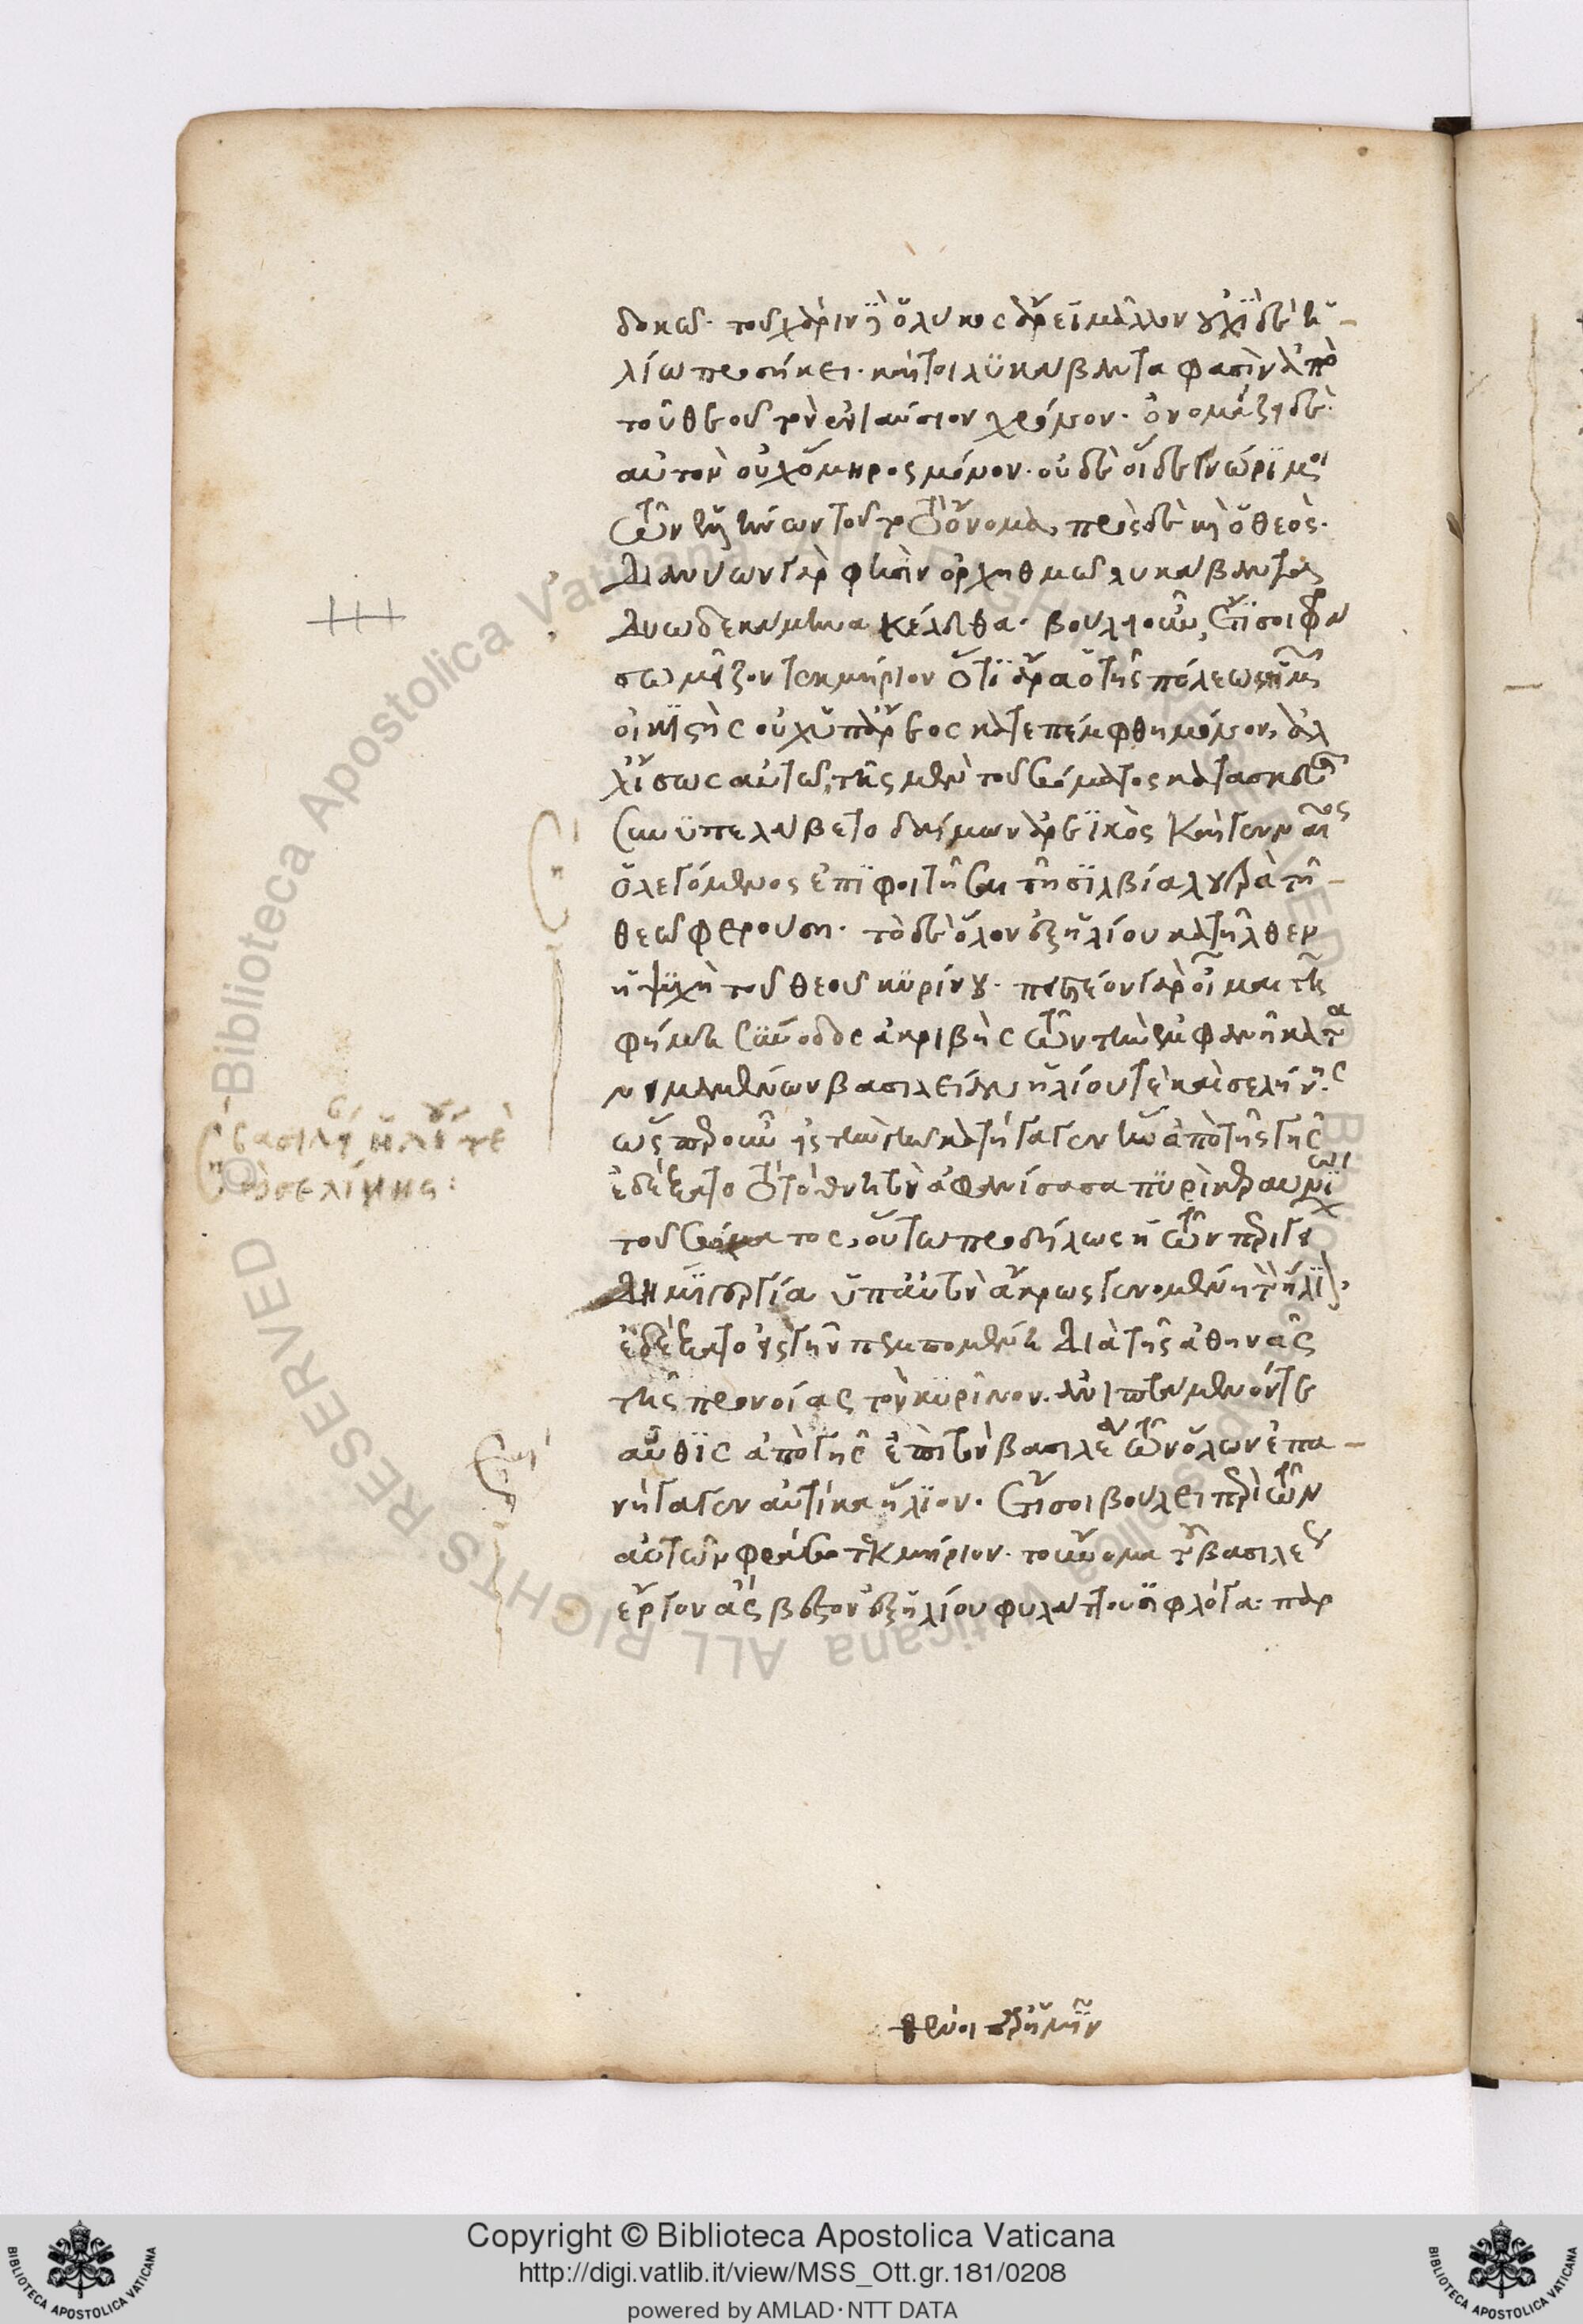 δοκῶ· τοῦ χάριν καὶ ὁ λύκος ἄρεϊ μᾶλλον οὐχὶ δὲ ἡ-
λίω προσήκει· καίτοι λυκάβαντα φασὶν ἀπὸ
τοῦ θεοῦ τὸν ἐνιαύσιον χρόνον· ὀνομάζει δὲ
αὐτὸν οὐχ ὅμηρος μόνον· οὐδὲ οἵδε γνώριμοι
τῶν ἑλλήνων τοῦτο τὸ ὄνομα, πρὸς δὲ καὶ ὁ θεός·
Διανύων γάρ φησὶν ὀρχηθμῶ λυκάβαντος
Δυωδεκάμηνα κέλευθα· βούλει οὖν, ἔτι σοι φρά
σω μεῖζον τεκμήριον ὅτι ἄρα ὁ τῆς πόλεως ἡμῶν
οἰκιστὴς οὐχ ὑπ' ἄρεος κατεπέμφθη μόνον, ἀλ
λ' ἴσως αὐτῶ, τῆς μὲν τοῦ σώματος κατασκευῆς
συνυπελάβετο δαίμων ἀρεϊκὸς καὶ γενναῖος
ὁ λεγόμενος ἐπιφοιτῆσαι τῆ σιλβία λουτρὰ τῆ-
θεῶ φερούση· τὸ δὲ ὅλον ἐξ ἡλίου κατῆλθεν
ἡ ψυχὴ τοῦ θεοῦ κυρίνου· πειστέον γὰρ οἶμαι τῆ
φήμη σύνοδος ἀκριβὴς τῶν τὴν ἐμφανῆ κατα
νειμαμένων βασιλείαν ἡλίου τὲ καὶ σελήνης
ὥσπερ οὖν εἰς τὴν γῆν κατήγαγεν ἣν ἀπὸ τῆς γῆς
ἐδέξατο τὸ θνητὸν ἀφανίσασα πυρὶ κεραυνίω
τοῦ σώματος, οὕτω προδήλως ἡ τῶν περιγεί
Δημιουργία ὑπ' αὐτὸν ἄκρως γενομένη τὸν ἥλιον,
ἐδέξατο εἰς γῆν πεμπομένη Διὰ τῆς ἀθηνᾶς
τῆς προνοίας τὸν κυρῖνον· ἀνιπτάμενόν τε
αὖθις ἀπὸ γῆς ἐπὶ τὸν βασιλέα τῶν ὅλων ἐπα-
νήγαγεν αὐτίκα ἥλιον· ἔτι σοι βούλει περὶ τῶν
αὐτῶν φράσω τεκμήριον· τοῦ νόμα τοῦ βασιλέως
ἔργον ἄσβεστον ἐξ ἡλίου φυλάττουσι φλόγα· παρ
θένοι παρ' ἡμῖν
βασιλεῖ ἡλίου τὲ
καὶ σελήνης: